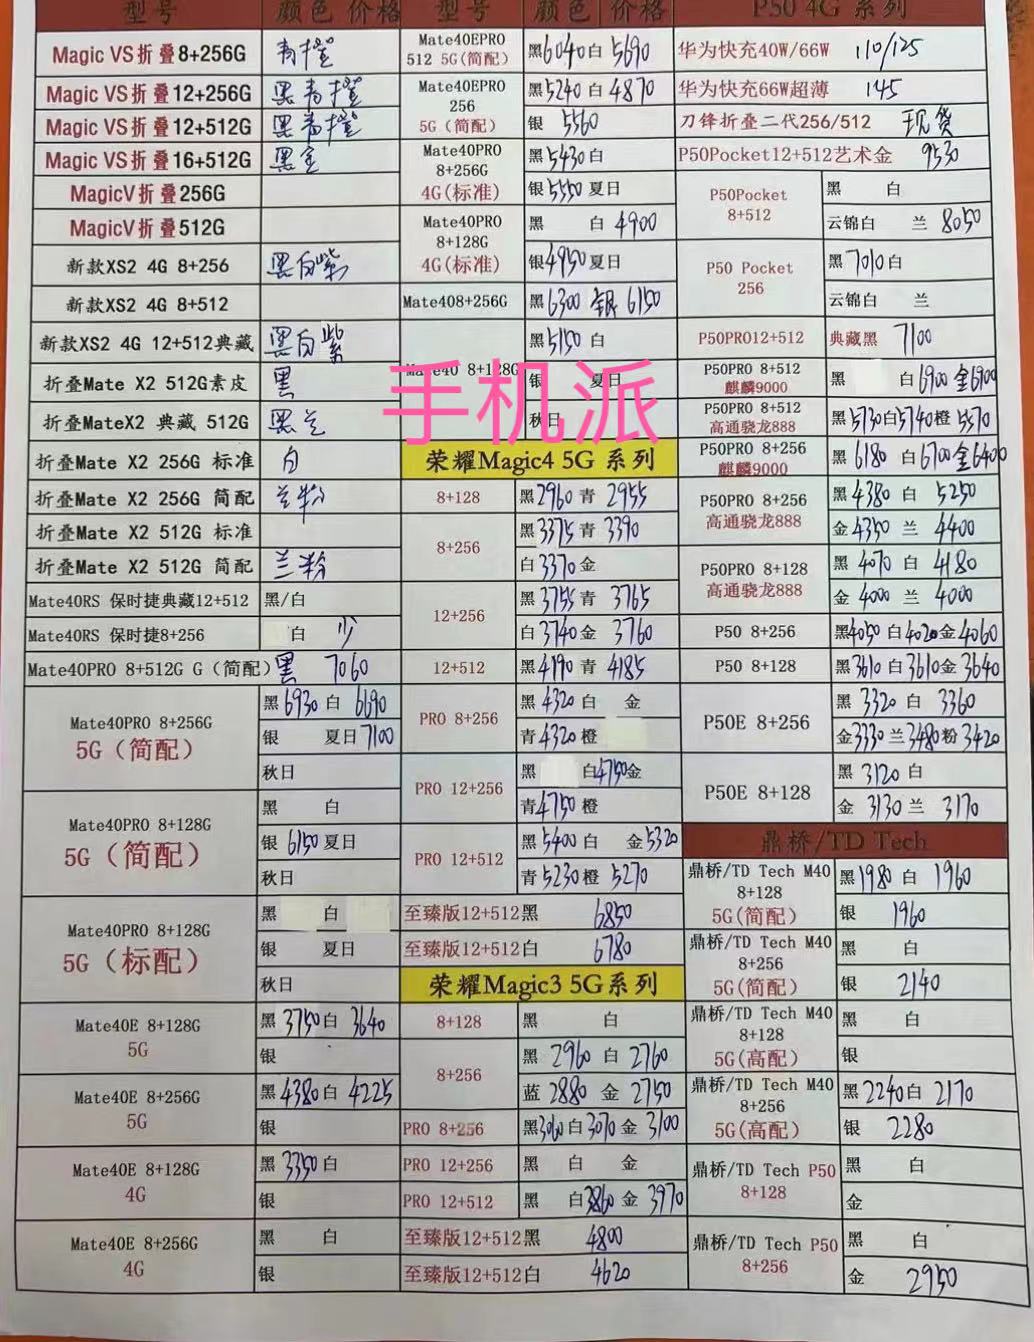 型号 颜色 价格
Magic VS折叠8+256G 青橙
Magic VS折叠12+256G 黑青橙
Magic VS折叠12+512G 黑青橙
Magic VS折叠16+512G 黑金
MagicV折叠256G
MagicV折叠512G
新款XS2 4G 8+256 黑白紫
新款XS2 4G 8+512
新款XS2 4G 12+512典藏 黑白紫
折叠Mate X2 512G素皮 黑
折叠MateX2 典藏 512G 黑兰
折叠Mate X2 256G 标准 白
折叠Mate X2 256G 简配 兰粉
折叠Mate X2 512G 标准
折叠Mate X2 512G 简配 兰粉
Mate40RS 保时捷典藏12+512 黑/白
Mate40RS 保时捷8+256 白 少
Mate40PRO 8+512G G(简配) 黑 7060
Mate40PRO 8+256G
5G(简配)
黑6930白 6690
银 夏日7100
秋日
Mate40PRO 8+128G
5G(简配)
黑 白
银 6150夏日
秋日
Mate40PRO 8+128G
5G(标配)
黑 白
银 夏日
秋日
Mate40E 8+128G
5G
黑 3750白 3640
银
Mate40E 8+256G
5G
黑4380白 4225
银
Mate40E 8+128G
4G
黑 3350白
银
Mate40E 8+256G
4G
黑 白
银
型号 颜色 价格
Mate40EPRO
512 5G(简配)
黑6040白 5690
Mate40EPRO
256
5G(简配)
黑5240白 4870
银 5560
Mate40PRO
8+256G
4G(标准)
黑5430白
银5550夏日
Mate40PRO
8+128G
4G(标准)
黑 白4900
银4950夏日
Mate408+256G 黑6300 银 6150
Mate40 8+128G
黑5150 白
银 夏日
秋日
手机派
荣耀Magic4 5G 系列
8+128 黑2960青 2955
8+256
黑3375青 3390
白3370金
12+256
黑3755青 3765
白3740金 3760
12+512 黑4190青 4185
PRO 8+256
黑4320白 金
青4320橙
PRO 12+256
黑 白4750金
青4750橙
PRO 12+512
黑5400白 金5320
青5230橙 5270
至臻版12+512黑 6850
至臻版12+512白 6780
荣耀Magic3 5G系列
8+128 黑 白
8+256
黑 2960 白 2760
蓝 2880 金 2750
PRO 8+256 黑3060白3070金 3100
PRO 12+256 黑 白 金
PRO 12+512 黑 白3860金 3970
至臻版12+512黑 4800
至臻版12+512白 4620
P50 4G 系列
华为快充40W/66W 110/125
华为快充66W超薄 145
刀锋折叠二代256/512 现货
P50Pocket12+512艺术金 9530
P50Pocket
8+512
黑 白
云锦白 兰 8050
P50 Pocket
256
黑7010白
云锦白 兰
P50PRO12+512 典藏黑 7100
P50PRO 8+512
麒麟9000
黑 白6900金6900
P50PRO 8+512
高通骁龙888
黑5730白5740橙 5570
P50PRO 8+256
麒麟9000
黑 6180 白6700金6400
P50PRO 8+256
高通骁龙888
黑4380 白 5250
金4350 兰 4400
P50PRO 8+128
高通骁龙888
黑 4070 白 4180
金 4000 兰 4000
P50 8+256 黑4050白4020金4060
P50 8+128 黑3610白3610金3640
P50E 8+256
黑 3320 白 3360
金3330兰3480粉3420
P50E 8+128
黑 3120 白
金 3130 兰 3170
鼎桥/TD Tech
鼎桥/TD Tech M40
8+128
5G(简配)
黑1980白 1960
银 1960
鼎桥/TD Tech M40
8+256
5G(简配)
黑 白
银 2140
鼎桥/TD Tech M40
8+128
5G(高配)
黑 白
银
鼎桥/TD Tech M40
8+256
5G(高配)
黑2240白 2170
银 2280
鼎桥/TD Tech P50
8+128
黑 白
金
鼎桥/TD Tech P50
8+256
黑 白
金 2950